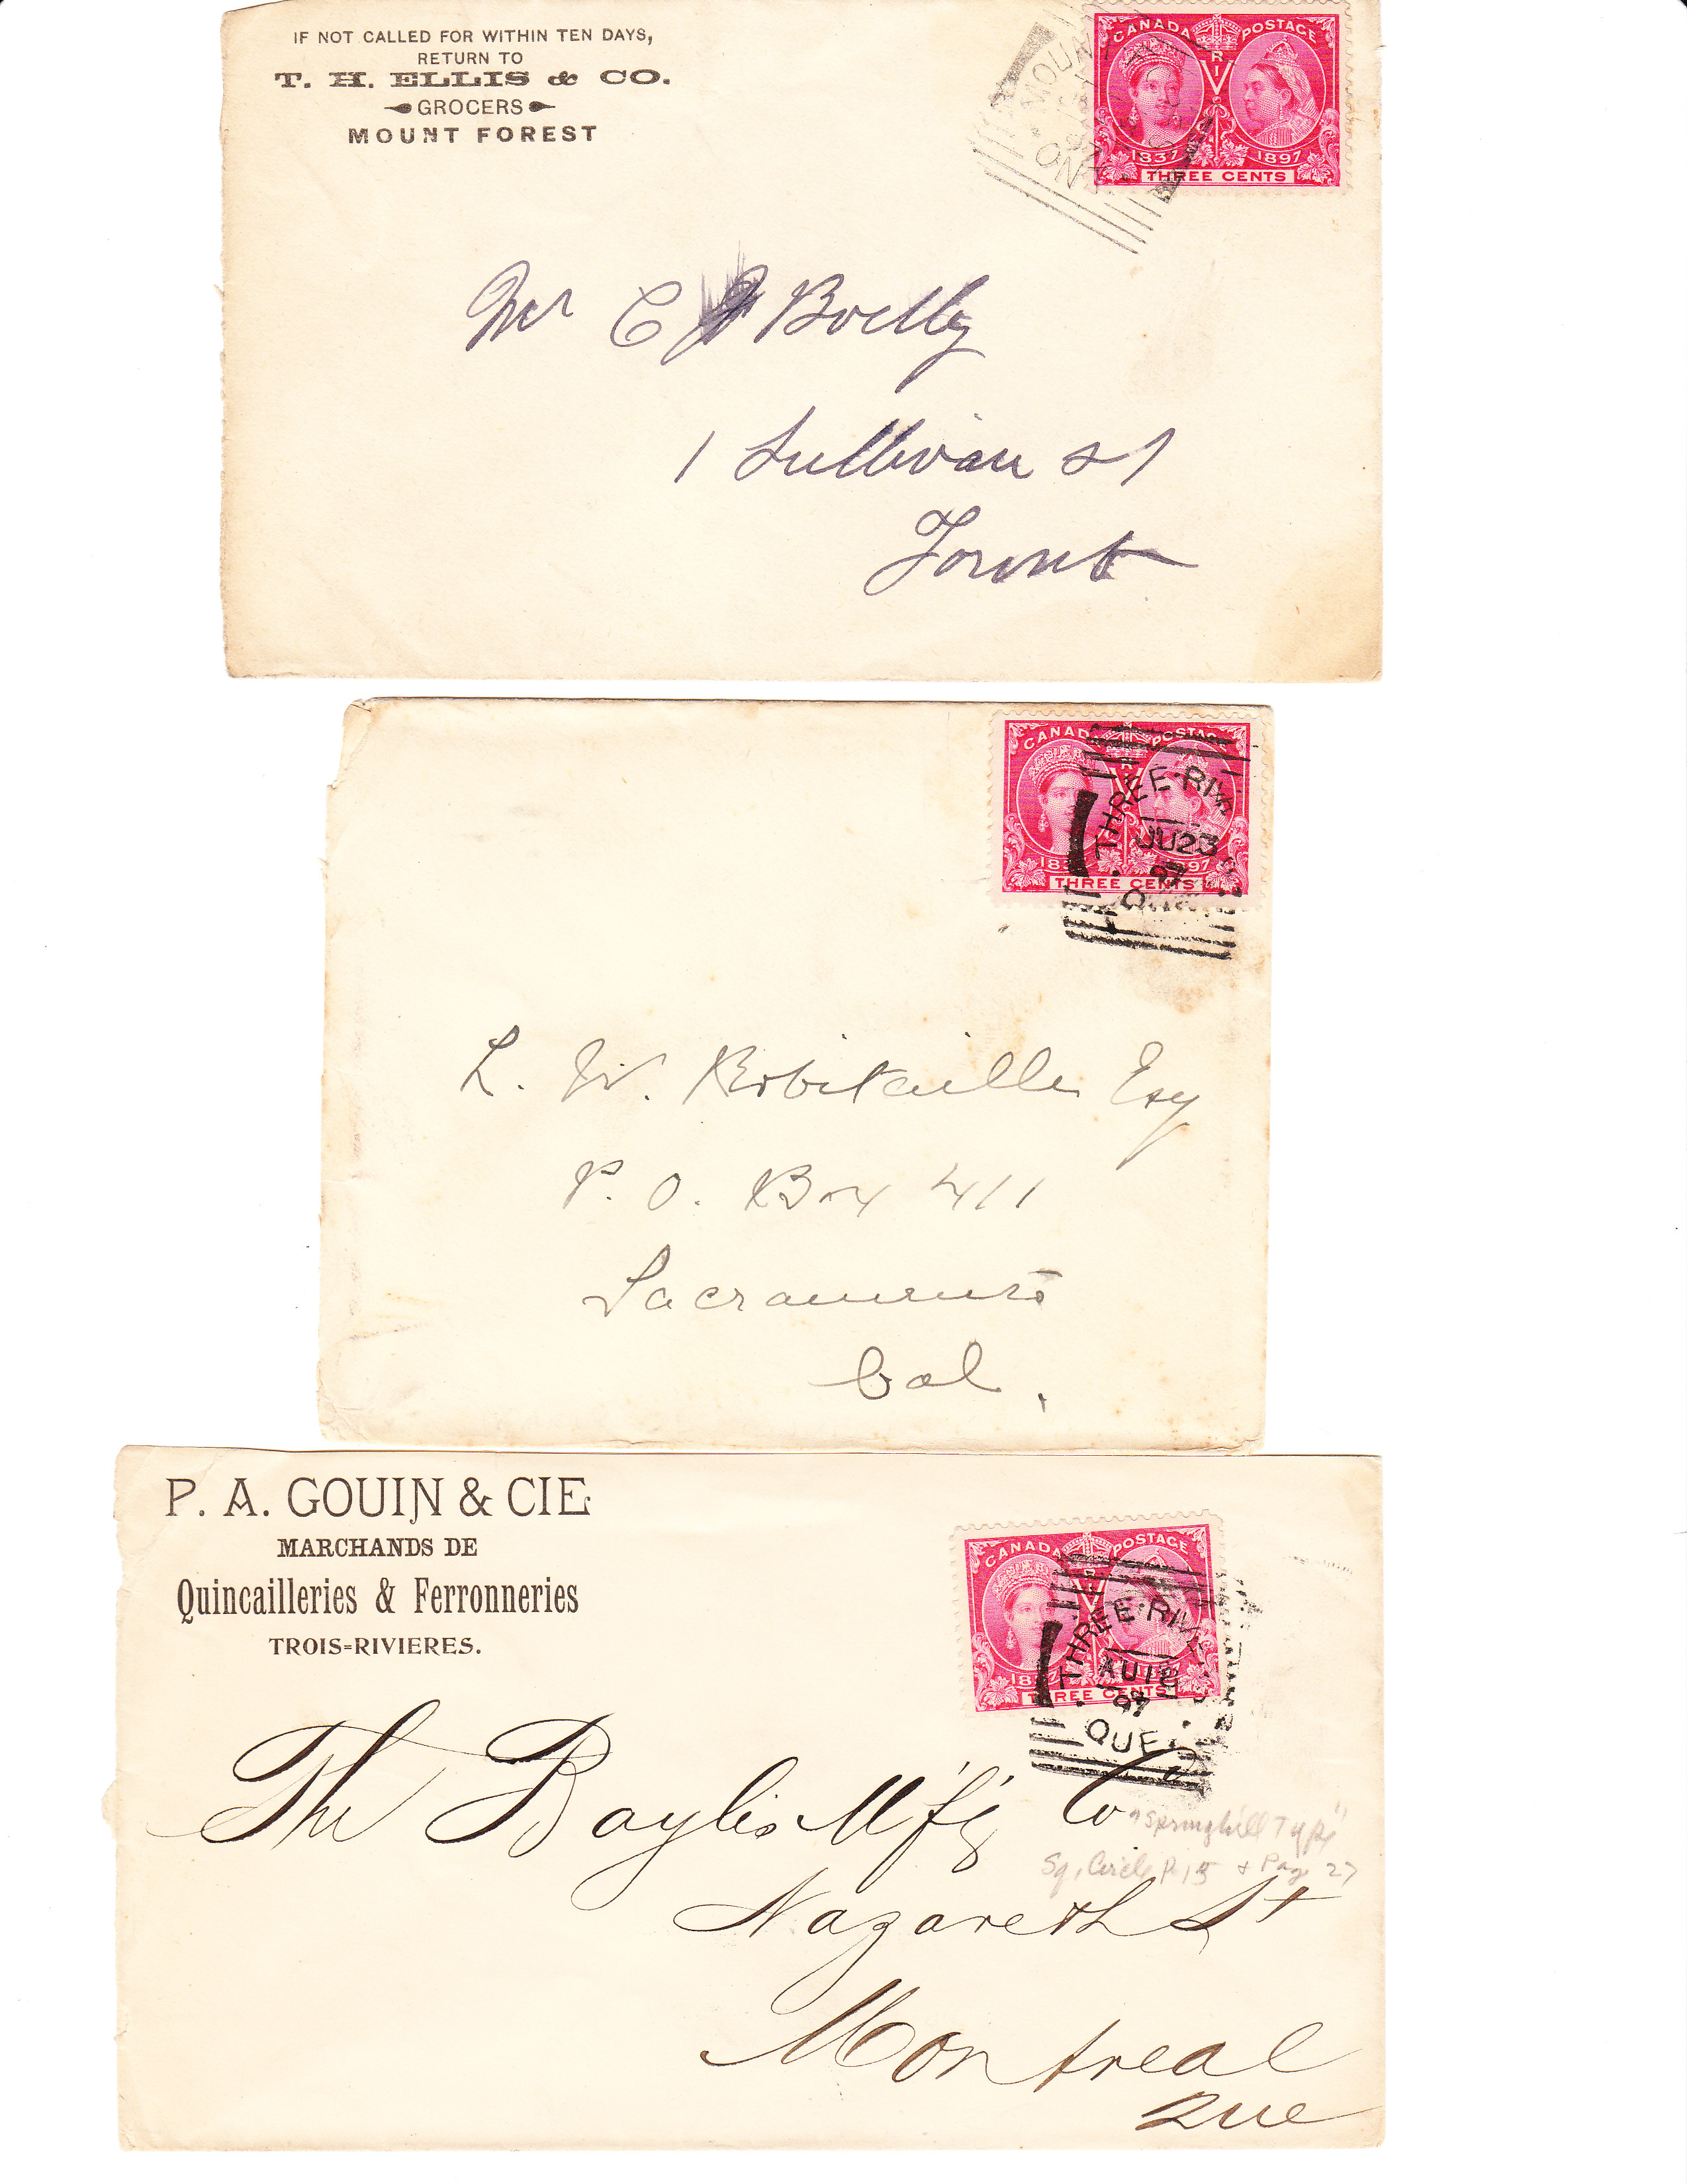 IF NOT CALLED FOR WITHIN TEN DAYS,
RETURN TO
T. H. ELLIS & CO.
GROCERS
MOUNT FOREST
CANADA POSTAGE
V R I
1837 1897
THREE CENTS
MOUN
ON
Mr C
1 Sullivan St
Toront
CANADA POSTAGE
THREE CENTS
THREE·RIV
JU 23
97
QUE
L. W. Robitaille Esq
P. O. Box 411
Sacramento
Cal.
P. A. GOUIN & CIE
MARCHANDS DE
Quincailleries & Ferronneries
TROIS=RIVIERES.
CANADA POSTAGE
THREE CENTS
THREE·RIV
AU 18
97
QUE
The Baylis M'f'g Co
"Springhill Type"
Sq. Circle P. 15 & Page 27
Nazareth St
Montreal
Que